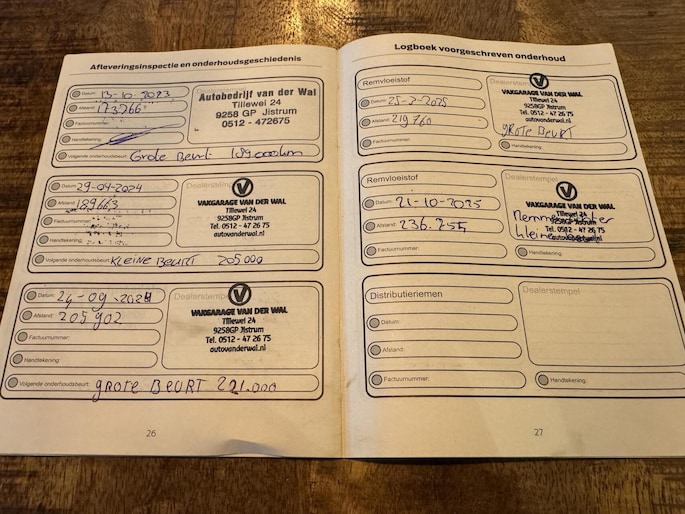 Afleveringsinspectie en onderhoudsgeschiedenis
Datum: 13-10-2023
Afstand: 173766
Factuurnummer:
Handtekening:
Volgende onderhoudsbeurt: Grote Beurt 189000km
Autobedrijf van der Wal
Tillewei 24
9258 GP Jistrum
0512 - 472675
Datum: 29-04-2024
Afstand: 189663
Factuurnummer:
Handtekening:
Volgende onderhoudsbeurt: KLEINE BEURT 205.000
Dealerstempel
VAKGARAGE VAN DER WAL
Tillewei 24
9258GP Jistrum
Tel. 0512 - 47 26 75
autovanderwal.nl
Datum: 24-09-2024
Afstand: 205902
Factuurnummer:
Handtekening:
Volgende onderhoudsbeurt: GROTE BEURT 221.000
Dealerstempel
VAKGARAGE VAN DER WAL
Tillewei 24
9258GP Jistrum
Tel. 0512 - 47 26 75
autovanderwal.nl
26
Logboek voorgeschreven onderhoud
Remvloeistof
Datum: 25-2-2025
Afstand: 219760
Factuurnummer:
Dealerstempel
VAKGARAGE VAN DER WAL
Tillewei 24
9258GP Jistrum
Tel. 0512 - 47 26 75
autovanderwal.nl
GROTE BEURT
Handtekening:
Remvloeistof
Datum: 21-10-2025
Afstand: 236.255
Factuurnummer:
Dealerstempel
VAKGARAGE VAN DER WAL
Tillewei 24
9258GP Jistrum
Tel. 0512 - 47 26 75
autovanderwal.nl
kleine
Handtekening:
Distributieriemen
Datum:
Afstand:
Factuurnummer:
Dealerstempel
Handtekening:
27